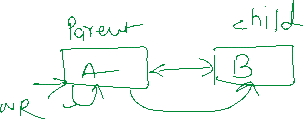 Parent child
A B
WR